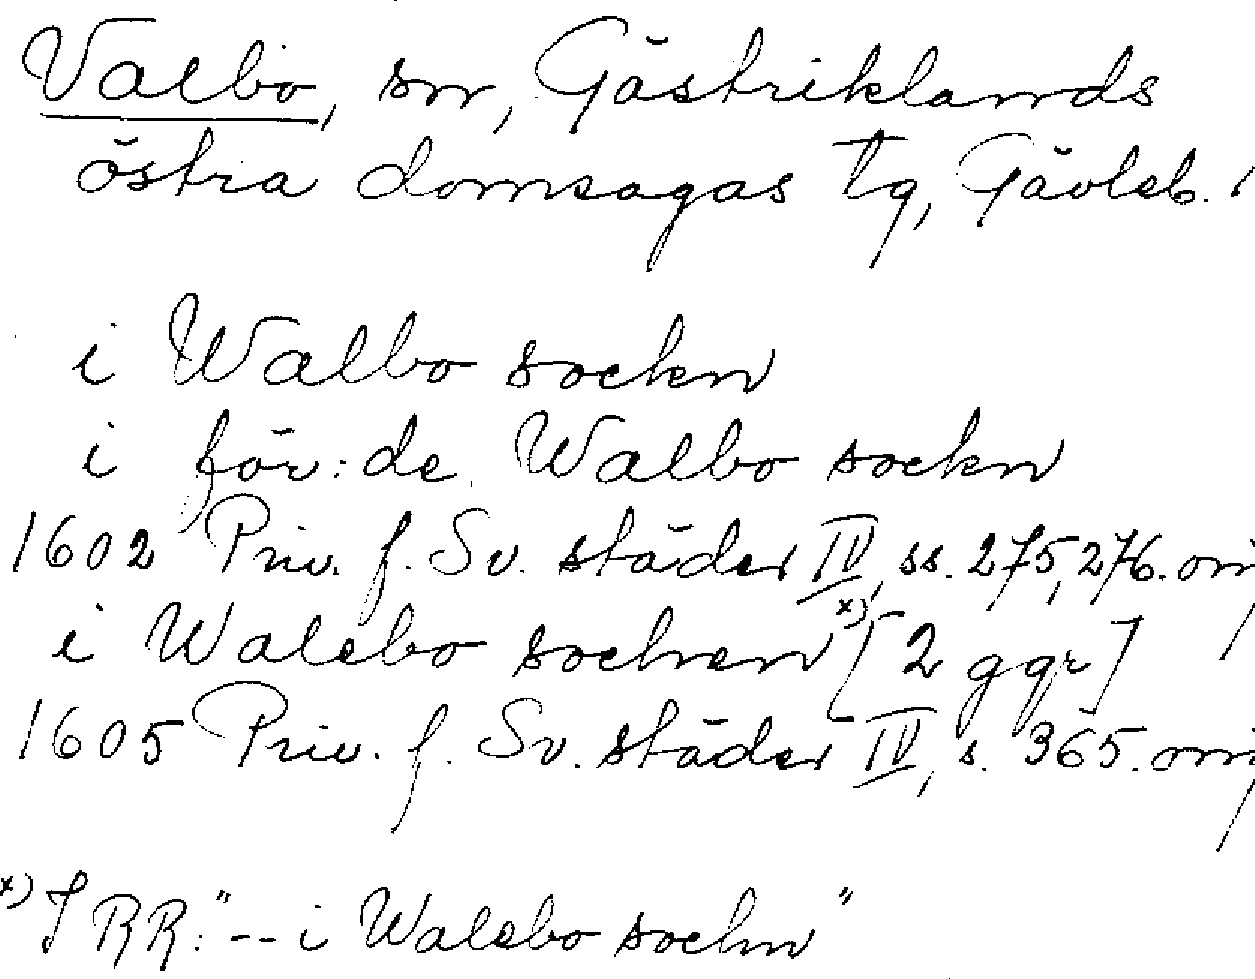 Valbo, sn, Gästriklands
östra domsagas tg, Gävleb. l
i Walbo sockn
i för:de Walbo sockn
1602 Priv. f. Sv. städer IV, ss. 275, 276. orig
i Walebo sochnen x) [2 ggr]
1605 Priv. f. Sv. städer IV, s. 365. orig
x) I RR: "-- i Walebo sochn"